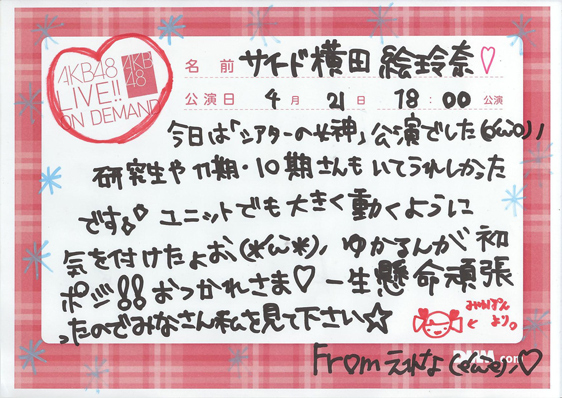 AKB48
LIVE!!
ON DEMAND
AKB
48
名前 サイード横田絵玲奈♡
公演日 4月 21日 18:00 公演
今日は「シアターの女神」公演でした(^ω^)ノ
研究生や11期・10期さんもいてうれしかった
です。♪ ユニットでも大きく動くように
気を付けたよぉ、(*´ω`*)、ゆかるんが初
ポジ!!おつかれさま♡ 一生懸命頑張
ったのでみなさん私を見て下さい☆
みゃおぽん
より。
From えれな
.com